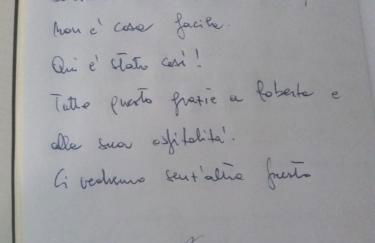 Non è cosa facile.
Qui è stato così!
Tutto questo grazie a Roberta e
alla sua ospitalità.
Ci vedremo senz'altro presto